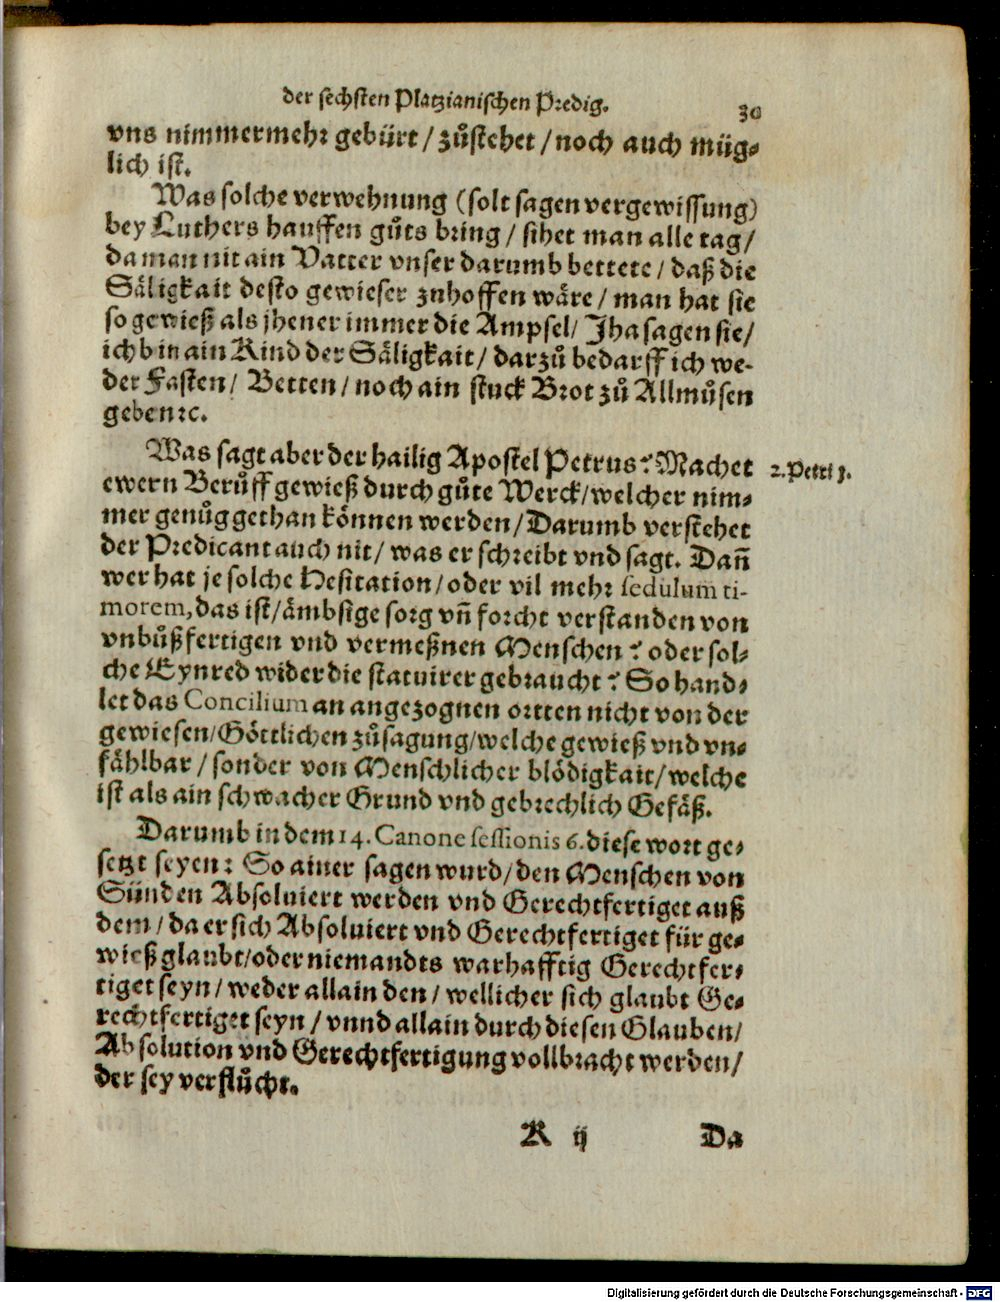 der sechsten Platzianischen Predig. 30
vns nimmermehr gebürt / zůstehet / noch auch müg-
lich ist.
Was solche verwehnung (solt sagen vergewissung)
bey Luthers hauffen gůts bring / sihet man alle tag /
da man nit ain Vatter vnser darumb bettete / daß die
Säligkait desto gewieser zuhoffen wäre / man hat sie
so gewieß als jhener immer die Ampsel / Jha sagen sie /
ich bin ain Kind der Säligkait / darzů bedarff ich we-
der Fasten / Betten / noch ain stuck Brot zů Allmůsen
geben ꝛc.
Was sagt aber der hailig Apostel Petrus? Machet
2. Petri 1.
ewern Berůff gewieß durch gůte Werck / welcher nim-
mer genůg gethan können werden / Darumb verstehet
der Predicant auch nit / was er schreibt vnd sagt. Dañ
wer hat je solche Hesitation / oder vil mehr sedulum ti-
morem, das ist / ämbsige sorg vñ forcht verstanden von
vnbůßfertigen vnd vermeßnen Menschen? oder sol-
che Eynred wider die statuirer gebraucht? So hand-
let das Concilium an angezognen ortten nicht von der
gewiesen / Göttlichen zůsagung / welche gewieß vnd vn-
fählbar / sonder von Menschlicher blödigkait / welche
ist als ain schwacher Grund vnd gebrechlich Gefäß.
Darumb in dem 14. Canone sessionis 6. diese wort ge-
setzt seyen: So ainer sagen wurd / den Menschen von
Sünden Absoluiert werden vnd Gerechtfertiget auß
dem / da er sich Absoluiert vnd Gerechtfertiget für ge-
wieß glaubt / oder niemandts warhafftig Gerechtfer-
tiget seyn / weder allain den / wellicher sich glaubt Ge-
rechtfertiget seyn / vnnd allain durch diesen Glauben /
Absolution vnd Gerechtfertigung vollbracht werden /
der sey verflůcht.
K ij Da
Digitalisierung gefördert durch die Deutsche Forschungsgemeinschaft - DFG